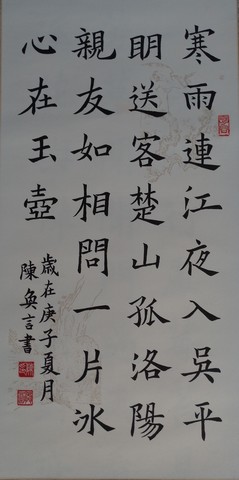 寒雨連江夜入吳平
明送客楚山孤洛陽
親友如相問一片冰
心在玉壺
歲在庚子夏月
陳奐言書